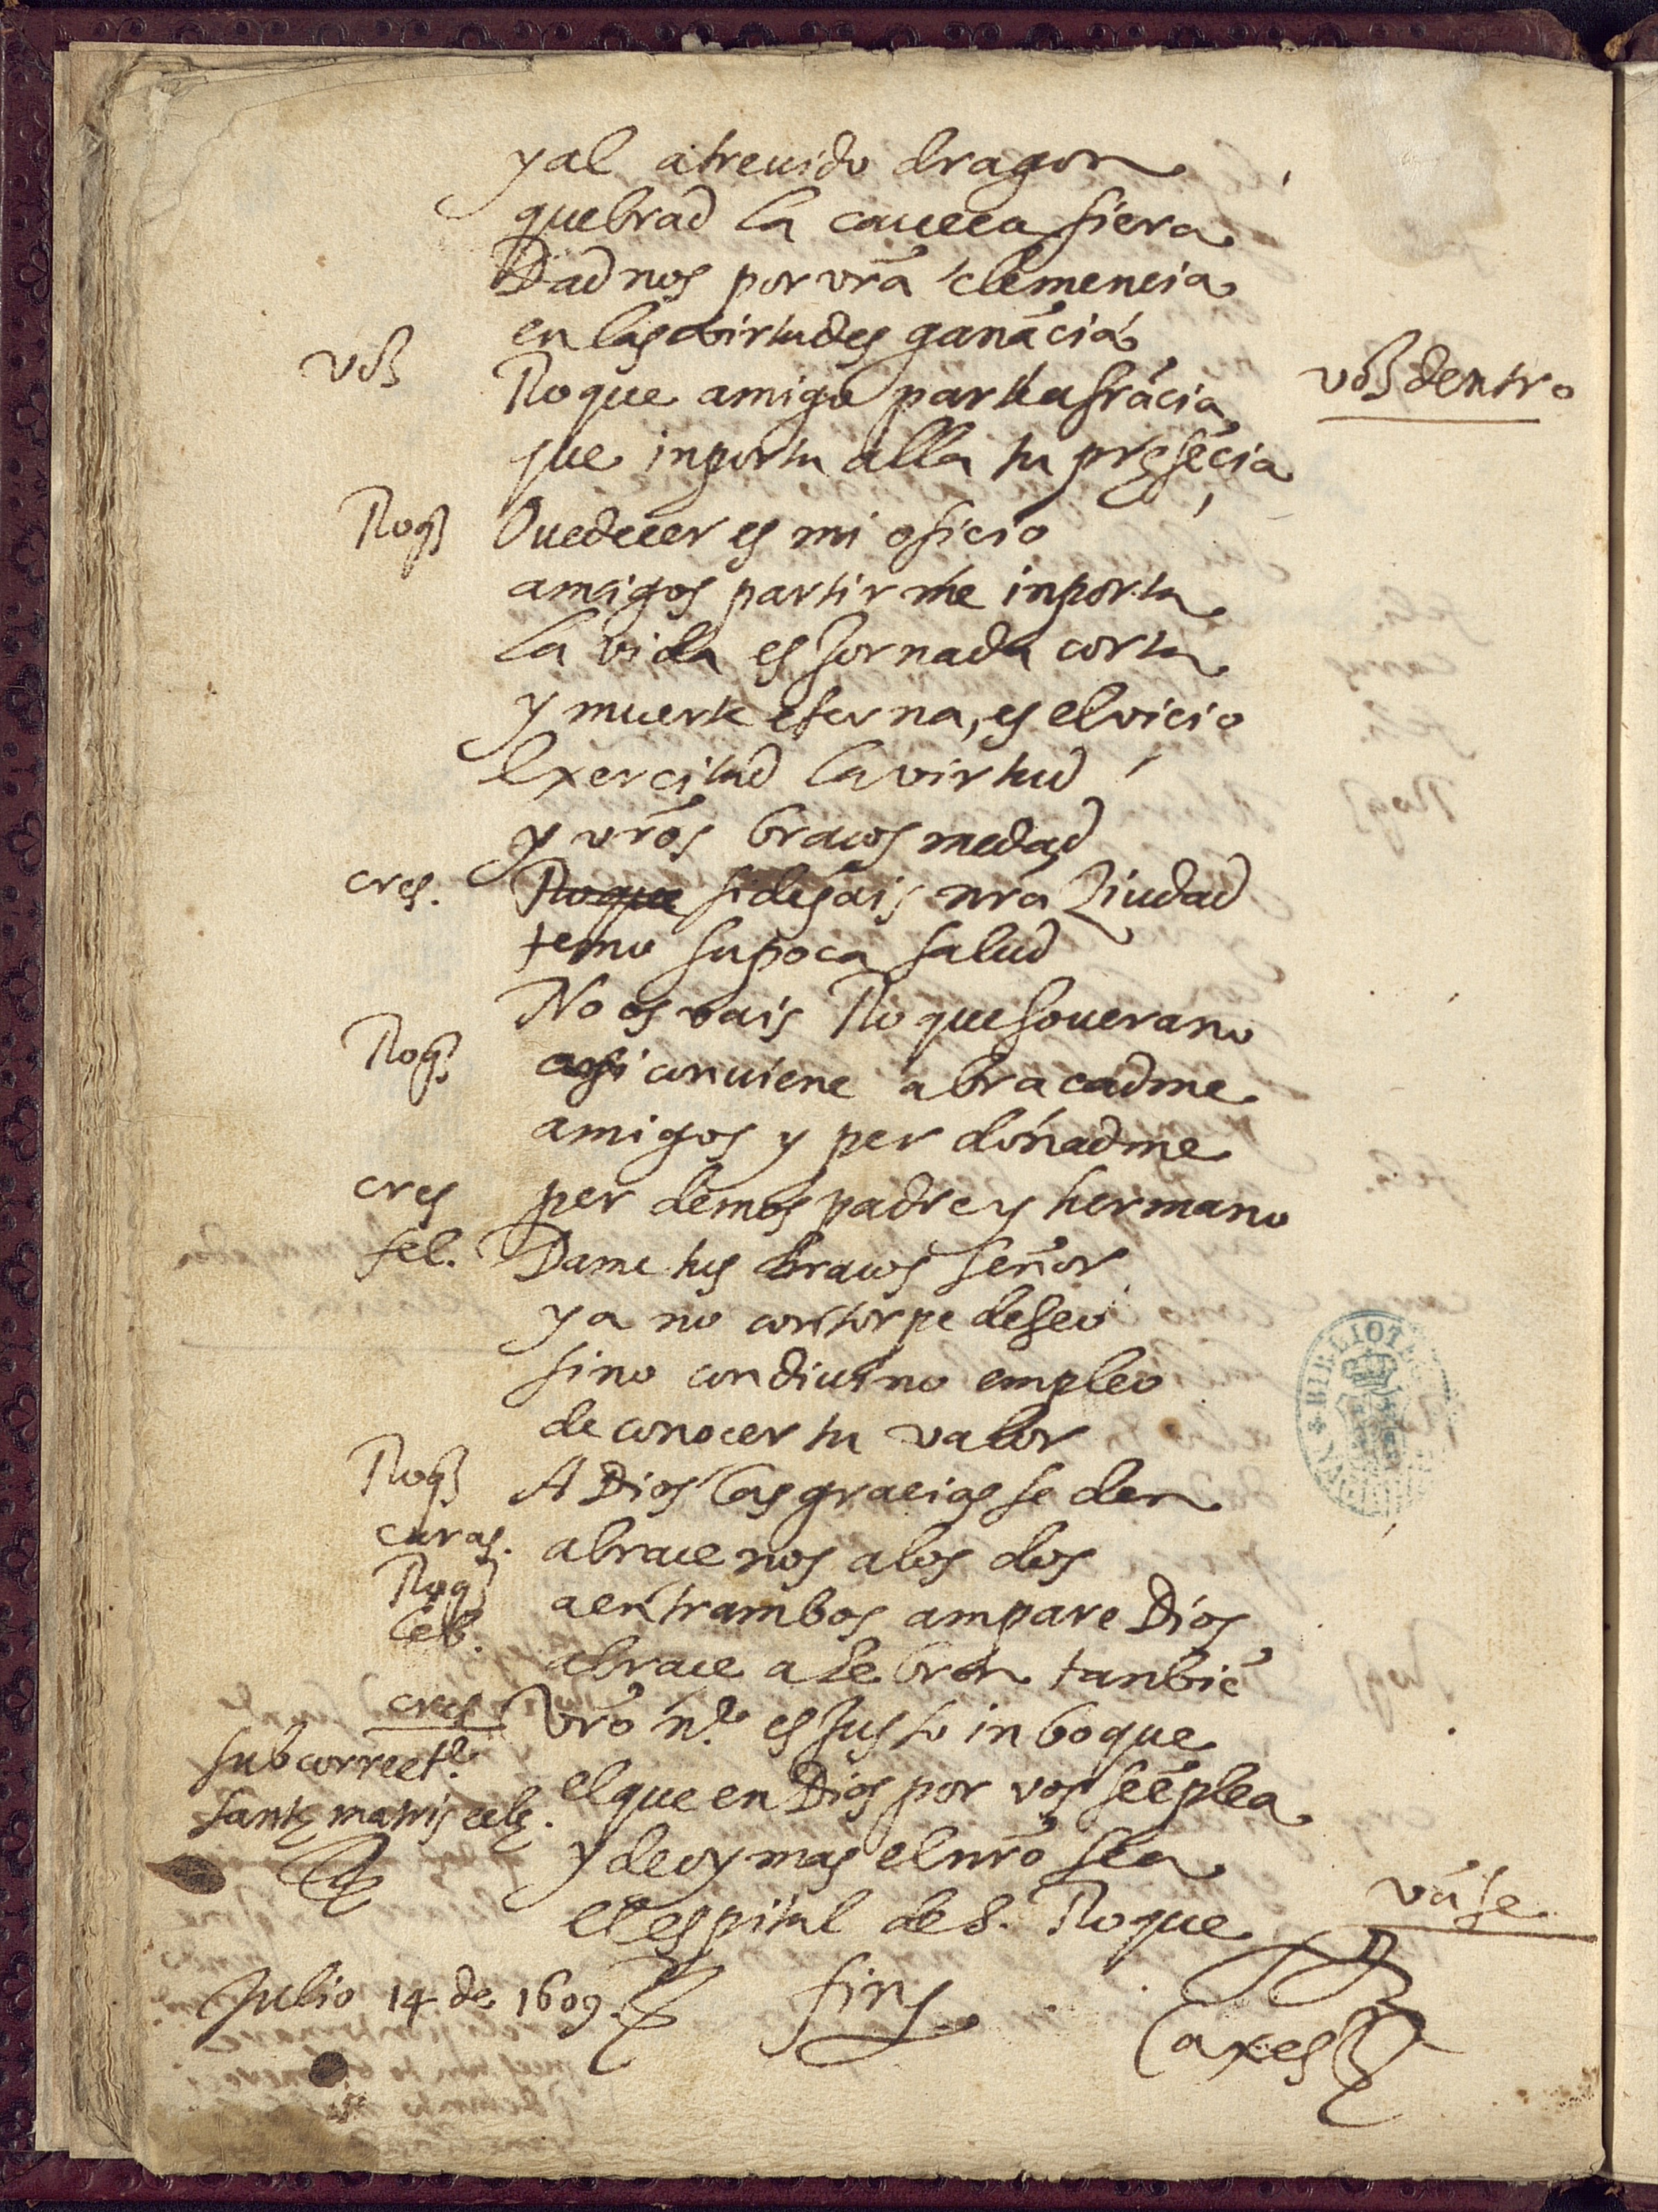 y al atreuido dragon
quebrad la caueça fiera
Dadnos por vrã clemencia
en las virtudes ganãcia
voz Roque amigo parte a frãcia voz dentro
que inporta alla tu presẽcia
Roq Ouedecer es mi oficio
amigos partirme inporta
la vida es Jornada corta
y muerte eterna, es el vicio
Exercitad la virtud
y vrõs braços me dad
cres. Roque si dejais nrã Ziudad
temo su poca salud
No os vais Roque souerano
Roq. asi conuiene abraçadme
amigos y perdonadme
cres perdemos padre y hermano
fel. Dame tus braços señor
ya no con torpe deseo
sino con diuino empleo
de conocer tu valor
Roq A Dios las gracias se den
caras. abrace nos a los dos
Roq a entrambos ampare Dios
Leb. abrace a Lebron tanbiẽ
cres Vrõ nᵉ es Justo inboque
sub correctᵉ
el que en Dios por vos se ẽplea
sante matris ecle.
y de oy mas el nrõ sea
el espital de S. Roque vãse
Julio 14 de 1609 finis
Caxes
BIBLIOTECA NACIONAL